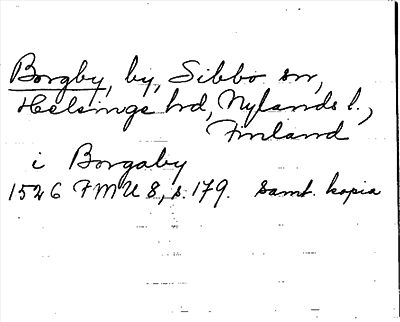 Borgby, by, Sibbo sn,
Helsinge hd, Nylands l.,
Finland
i Borgaby
1526 FMU 8, s. 179. Samt. kopia